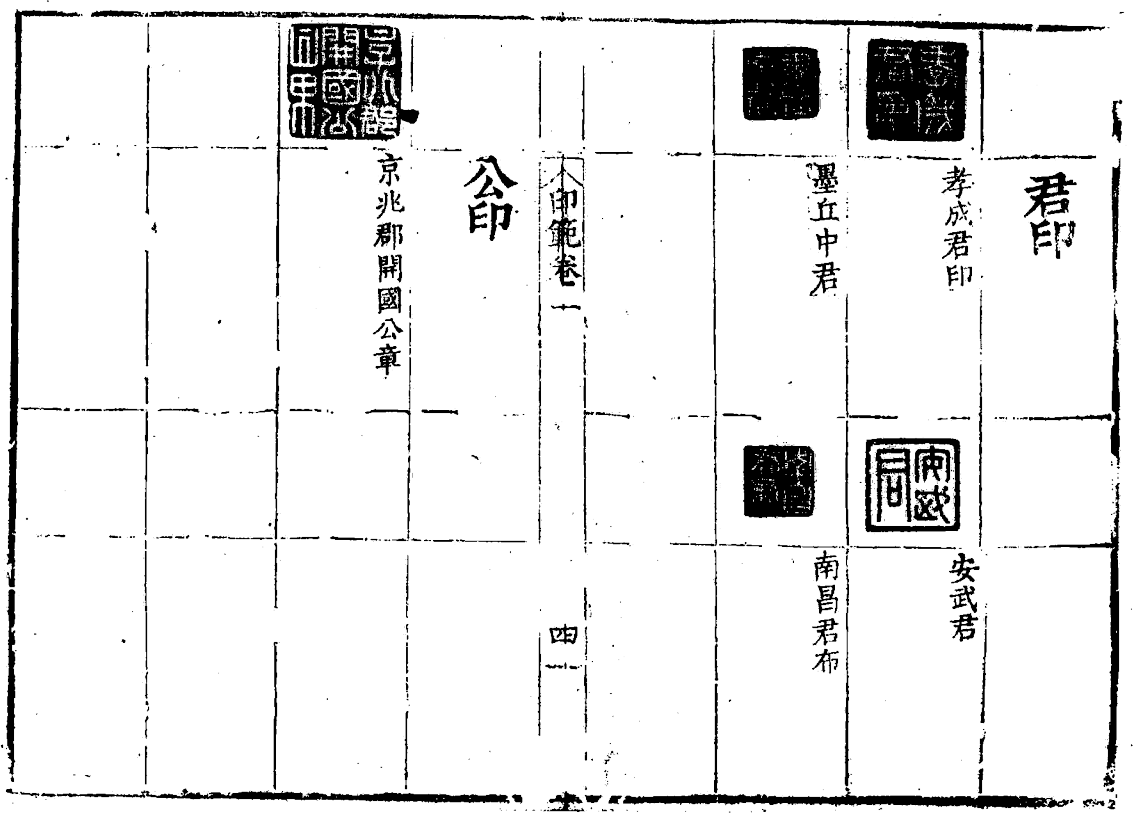 君印
孝成君印
安武君
墨丘中君
南昌君布
印範卷一
四
公印
京兆郡開國公章